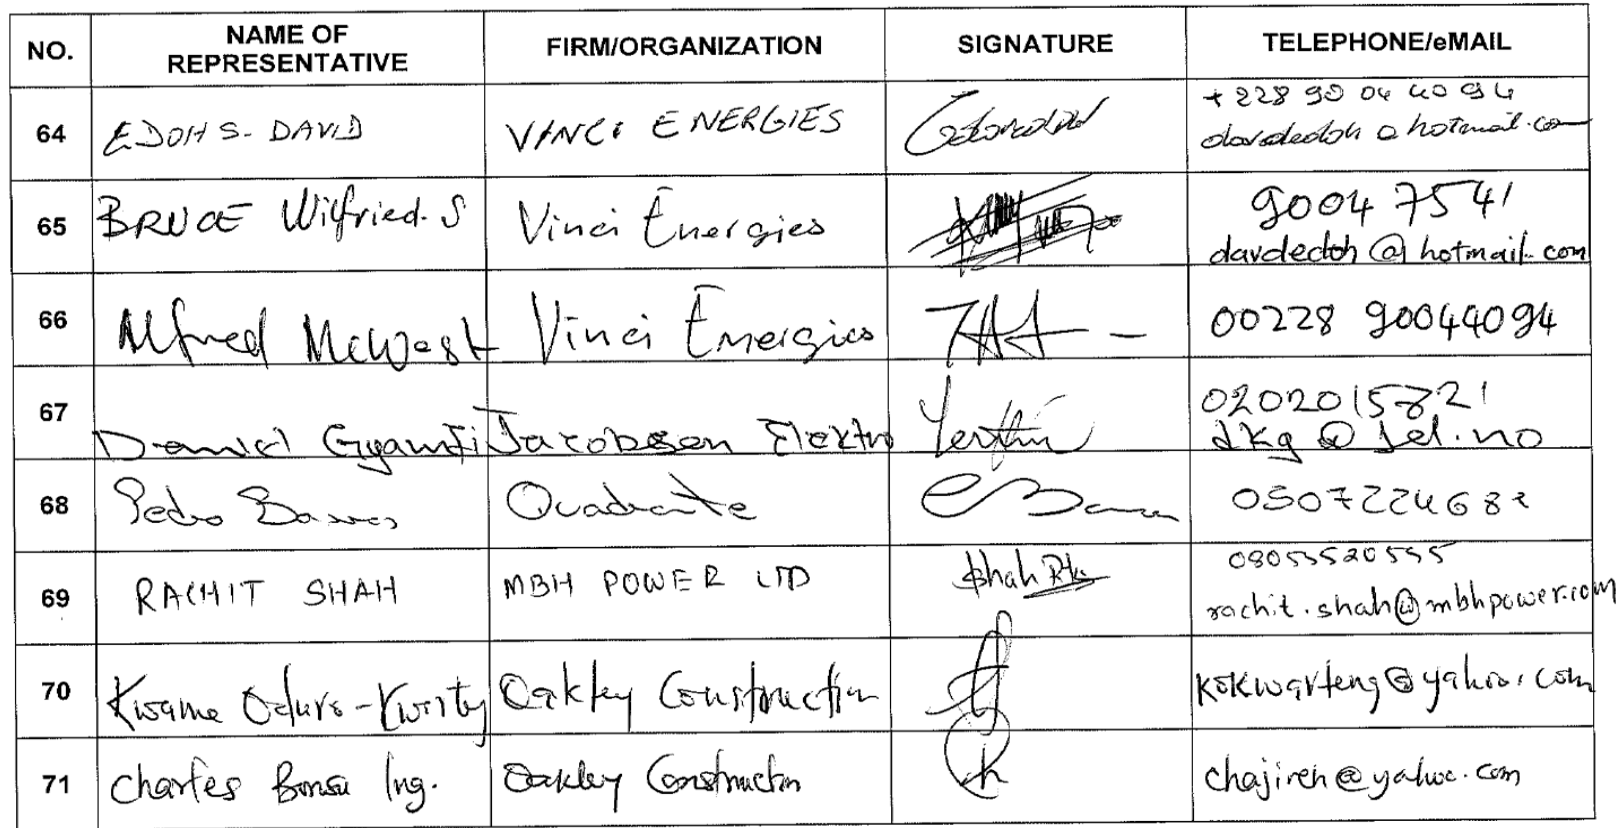 NO. NAME OF REPRESENTATIVE FIRM/ORGANIZATION SIGNATURE TELEPHONE/eMAIL
64 EDOH S. DAVID VINCI ENERGIES +228 90 04 40 94
davdedoh@hotmail.com
65 BRUCE Wilfried. S Vinci Energies 9004 7541
davdedoh@hotmail.com
66 Alfred McWest Vinci Energies 00228 90044094
67 Daniel Gyamfi Jacobsen Elektro 0202015821
dkg@jel.no
68 Pedro Quadrante
69 RACHIT SHAH MBH POWER LTD Shah 08055520555
rachit.shah@mbhpower.com
70 Kwame Oduro- Oakley Construction kokwarteng@yahoo.com
71 Charles Bonsu Ing. Oakley Construction